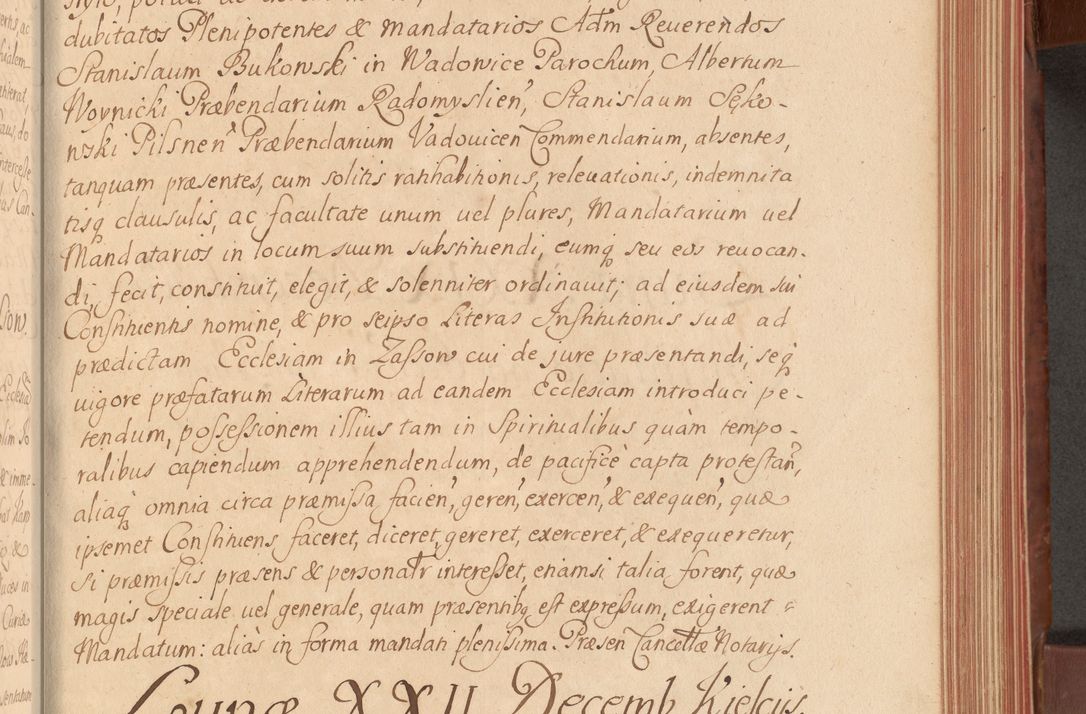 dubitatos Plenipotentes & Mandatarios Adm Reuerendos
Stanislaum Bukowski in Wadowice Parochum, Albertum
Woynicki Præbendarium Radomyslien, Stanislaum Sęko-
wski Pilsnen Præbendarium Vadouicen Commendarium, absentes,
tanquam præsentes, cum solitis rathabitionis, releuationis, indemnita
tisq clausulis, ac facultate unum uel plures, Mandatarium uel
Mandatarios in locum suum substituendi, eumq seu eos reuocan-
di, fecit, constituit, elegit, & solenniter ordinauit; ad eiusdem sui
Constituentis nomine, & pro seipso Literas Institutionis suæ ad
prædictam Ecclesiam in Zassow cui de jure præsentandi, seq
uigore præfatarum Literarum ad eandem Ecclesiam introduci pe-
tendum, possessionem illius tam in Spiritualibus quàm tempo-
ralibus capiendum apprehendendum, de pacificè capta protestan,
aliaq omnia circa præmissa facien, geren, exercen, & exequen, quæ
ipsemet Constituens faceret, diceret, gereret, exerceret, & exequeretur,
si præmissis præsens & personatr interesset, etiamsi talia forent, quæ
magis speciale uel generale, quam præsentibq est expressum, exigerent
Mandatum: aliàs in forma mandati plenissima. Præsen Cancellæ Notarijs.
Lunæ XXII Decemb Kielcijs.